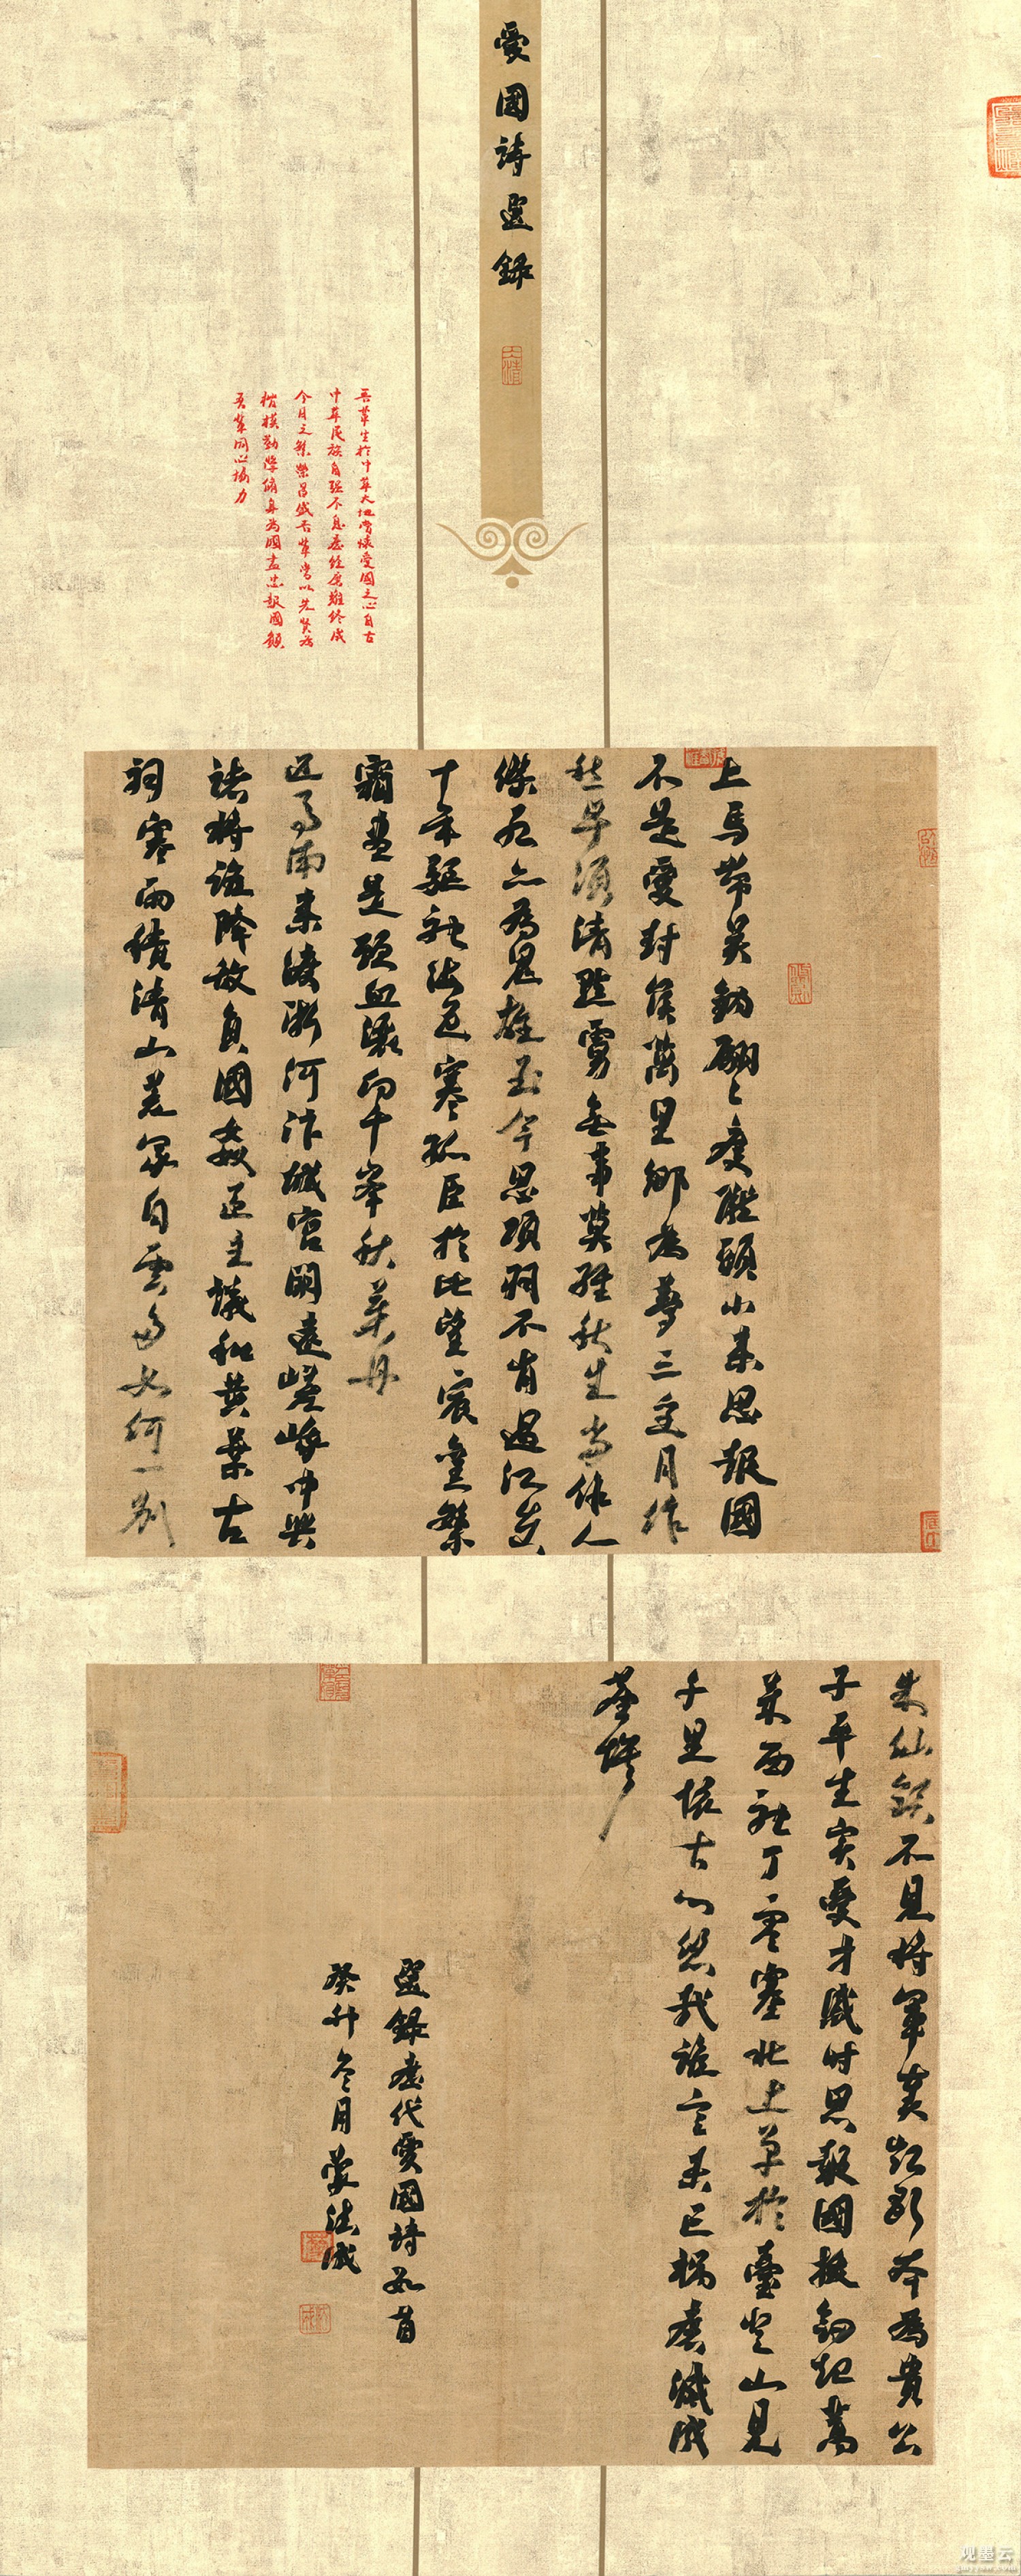 愛國詩選錄
吾輩生於中華大地當懷愛國之心自古
中華民族自强不息歷經磨難終成
今日之繁榮昌盛吾輩當以先賢為
楷模勤學修身為國盡忠報國願
吾輩同心協力
上馬帶吴鈎翩々度隴頭小来思報國
不是愛封侯萬里鄉為夢三邊月作
愁早須清黠虜無事莫經秋生當作人
傑死亦為鬼雄至今思項羽不肯過江東
十年驅馳海色寒孤臣於此望宸鑾繁
霜盡是心頭血灑向千峯秋葉丹
匹馬南来渡浙河汴城宮闕遠嵯峨中興
諸將誰降敵負國奸臣主議和黄葉古
祠寒雨積清山荒冢白雲多如何一別
朱仙鎮不見將軍奏凱歌本為貴公
子平生實愛才感時思報國拔劍起蒿
萊西馳丁零塞北上單于臺登山見
千里懷古心悠哉誰言未忘禍磨滅成
塵埃
選錄歷代愛國詩數首
癸卯冬月
观墨云